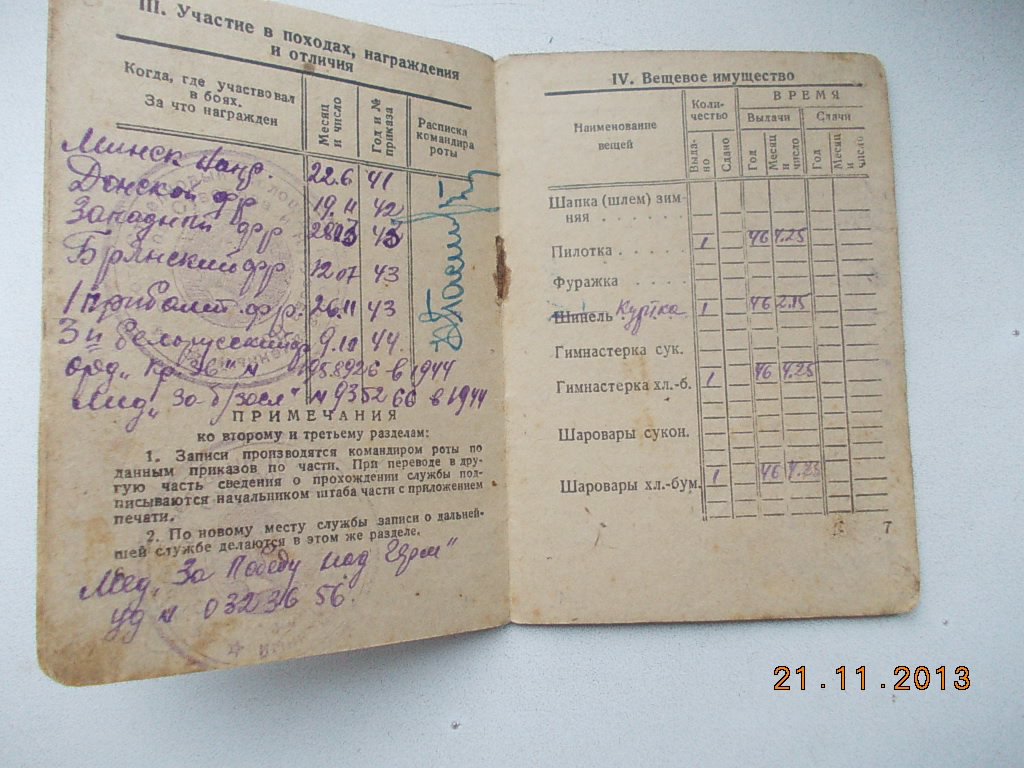 III. Участие в походах, награждения
и отличия
Когда, где участвовал
в боях.
За что награжден
Месяц
и число
Год и №
приказа
Расписка
командира
роты
Минск напр. 22.6 41
Донской фр 19.11 42
Западный фр 43
Брянский фр 12 07 43
1 Прибалт. фр. 26.11 43
3й белорусский фр 9.10 44.
орд „Кр. Зв" № 1958926 в 1944
Мед „За б/засл" № 935266 в 1944
ПРИМЕЧАНИЯ
ко второму и третьему разделам:
1. Записи производятся командиром роты по
данным приказов по части. При переводе в дру-
гую часть сведения о прохождении службы под-
писываются начальником штаба части с приложением
печати.
2. По новому месту службы записи о дальней-
шей службе делаются в этом же разделе.
Мед. За Победу над Герм"
уд № 0323656.
IV. Вещевое имущество
Наименование
вещей
Коли-
чество
ВРЕМЯ
Выдачи
Сдачи
Выда-
но
Сдано
Год
Месяц
и
число
Год
Месяц
и
число
Шапка (шлем) зим-
няя . . . . . .
Пилотка . . . . 1 46 4.25
Фуражка . . . .
Шинель Куртка 1 46
Гимнастерка сук.
Гимнастерка хл.-б. 1 46 4.25
Шаровары сукон.
Шаровары хл.-бум. 1 46 4.25
7
21.11.2013